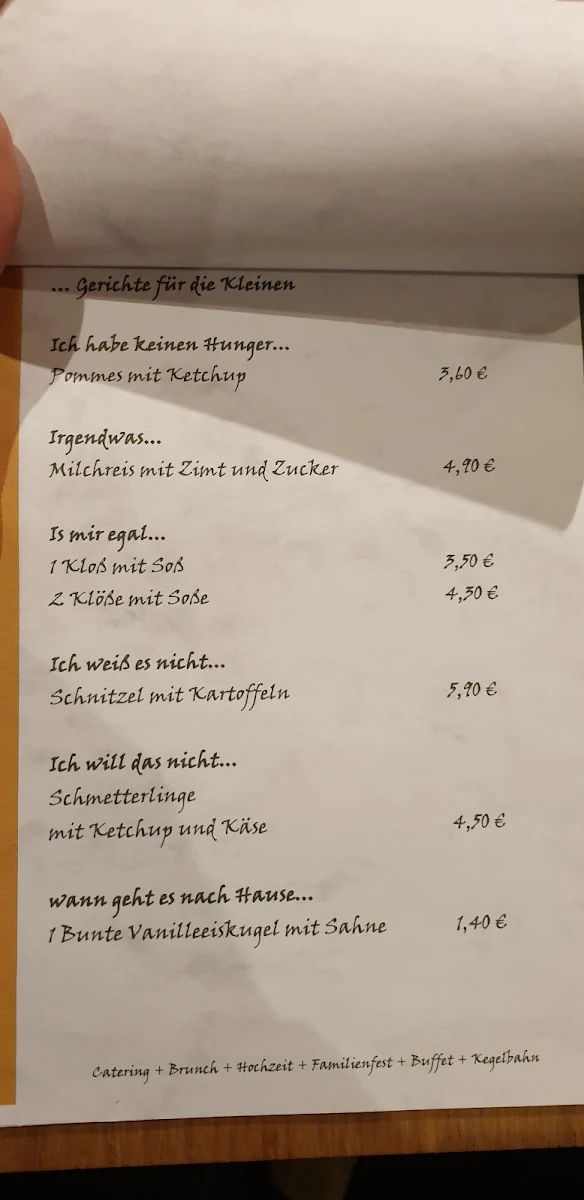 ... Gerichte für die Kleinen
Ich habe keinen Hunger...
Pommes mit Ketchup 3,60 €
Irgendwas...
Milchreis mit Zimt und Zucker 4,90 €
Is mir egal...
1 Kloß mit Soß 3,50 €
2 Klöße mit Soße 4,30 €
Ich weiß es nicht...
Schnitzel mit Kartoffeln 5,90 €
Ich will das nicht...
Schmetterlinge
mit Ketchup und Käse 4,50 €
wann geht es nach Hause...
1 Bunte Vanilleeiskugel mit Sahne 1,40 €
Catering + Brunch + Hochzeit + Familienfest + Buffet + Kegelbahn